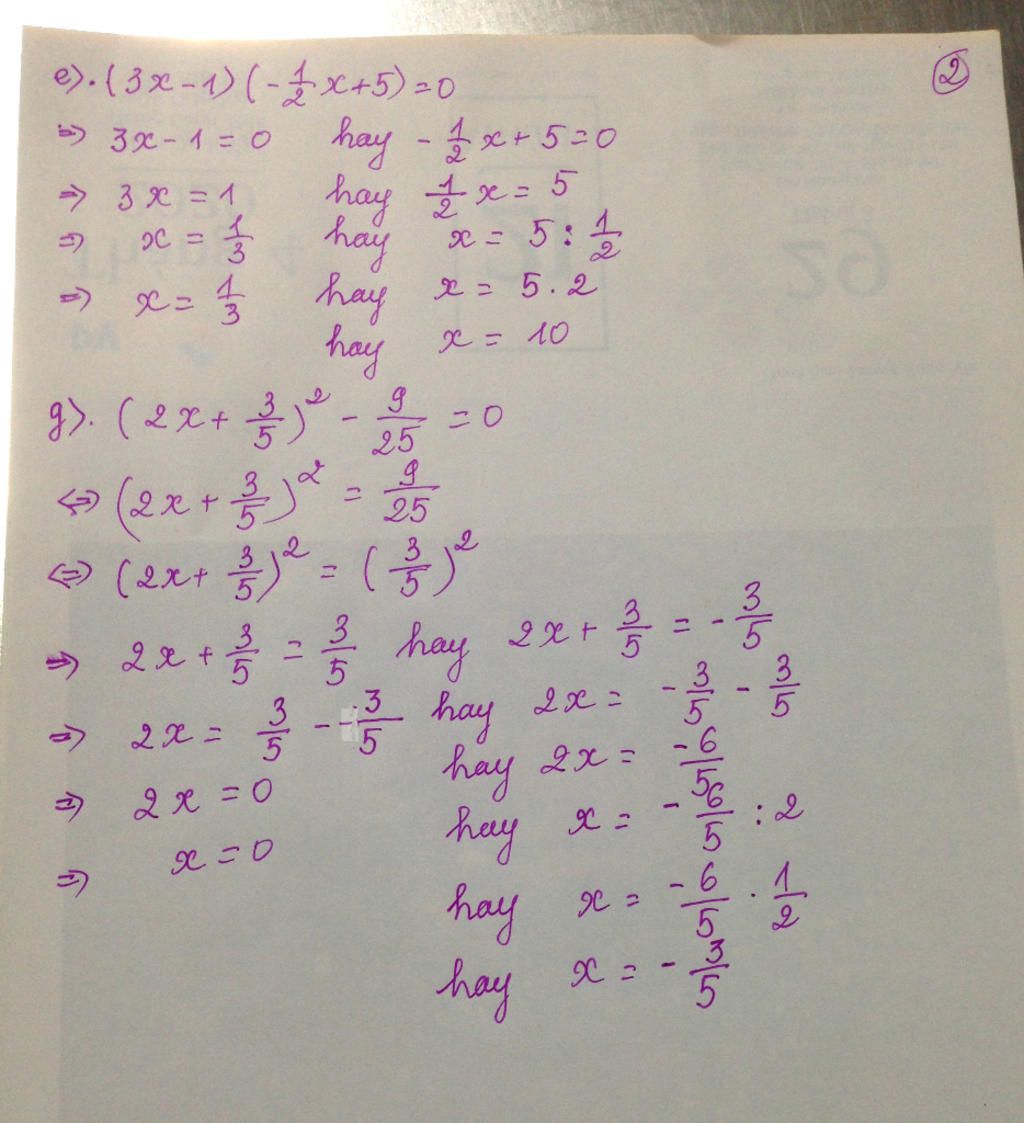 ②
e). (3x - 1) (-1/2 x + 5) = 0
⇒ 3x - 1 = 0 hay -1/2 x + 5 = 0
⇒ 3x = 1 hay 1/2 x = 5
⇒ x = 1/3 hay x = 5 : 1/2
⇒ x = 1/3 hay x = 5 . 2
hay x = 10
g). (2x + 3/5)² - 9/25 = 0
⇔ (2x + 3/5)² = 9/25
⇔ (2x + 3/5)² = (3/5)²
⇒ 2x + 3/5 = 3/5 hay 2x + 3/5 = -3/5
⇒ 2x = 3/5 - 3/5 hay 2x = -3/5 - 3/5
⇒ 2x = 0 hay 2x = -6/5
⇒ x = 0 hay x = -6/5 : 2
hay x = -6/5 . 1/2
hay x = -3/5